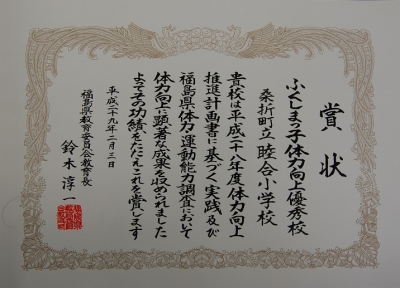 賞状
ふくしまっ子体力向上優秀校
桑折町立睦合小学校
貴校は平成二十八年度体力向上
推進計画書に基づく実践及び
福島県体力運動能力調査において
体力向上に顕著な成果を収められました
よってその功績をたたえこれを賞します
平成二十九年二月三日
福島県教育委員会教育長
鈴木淳一